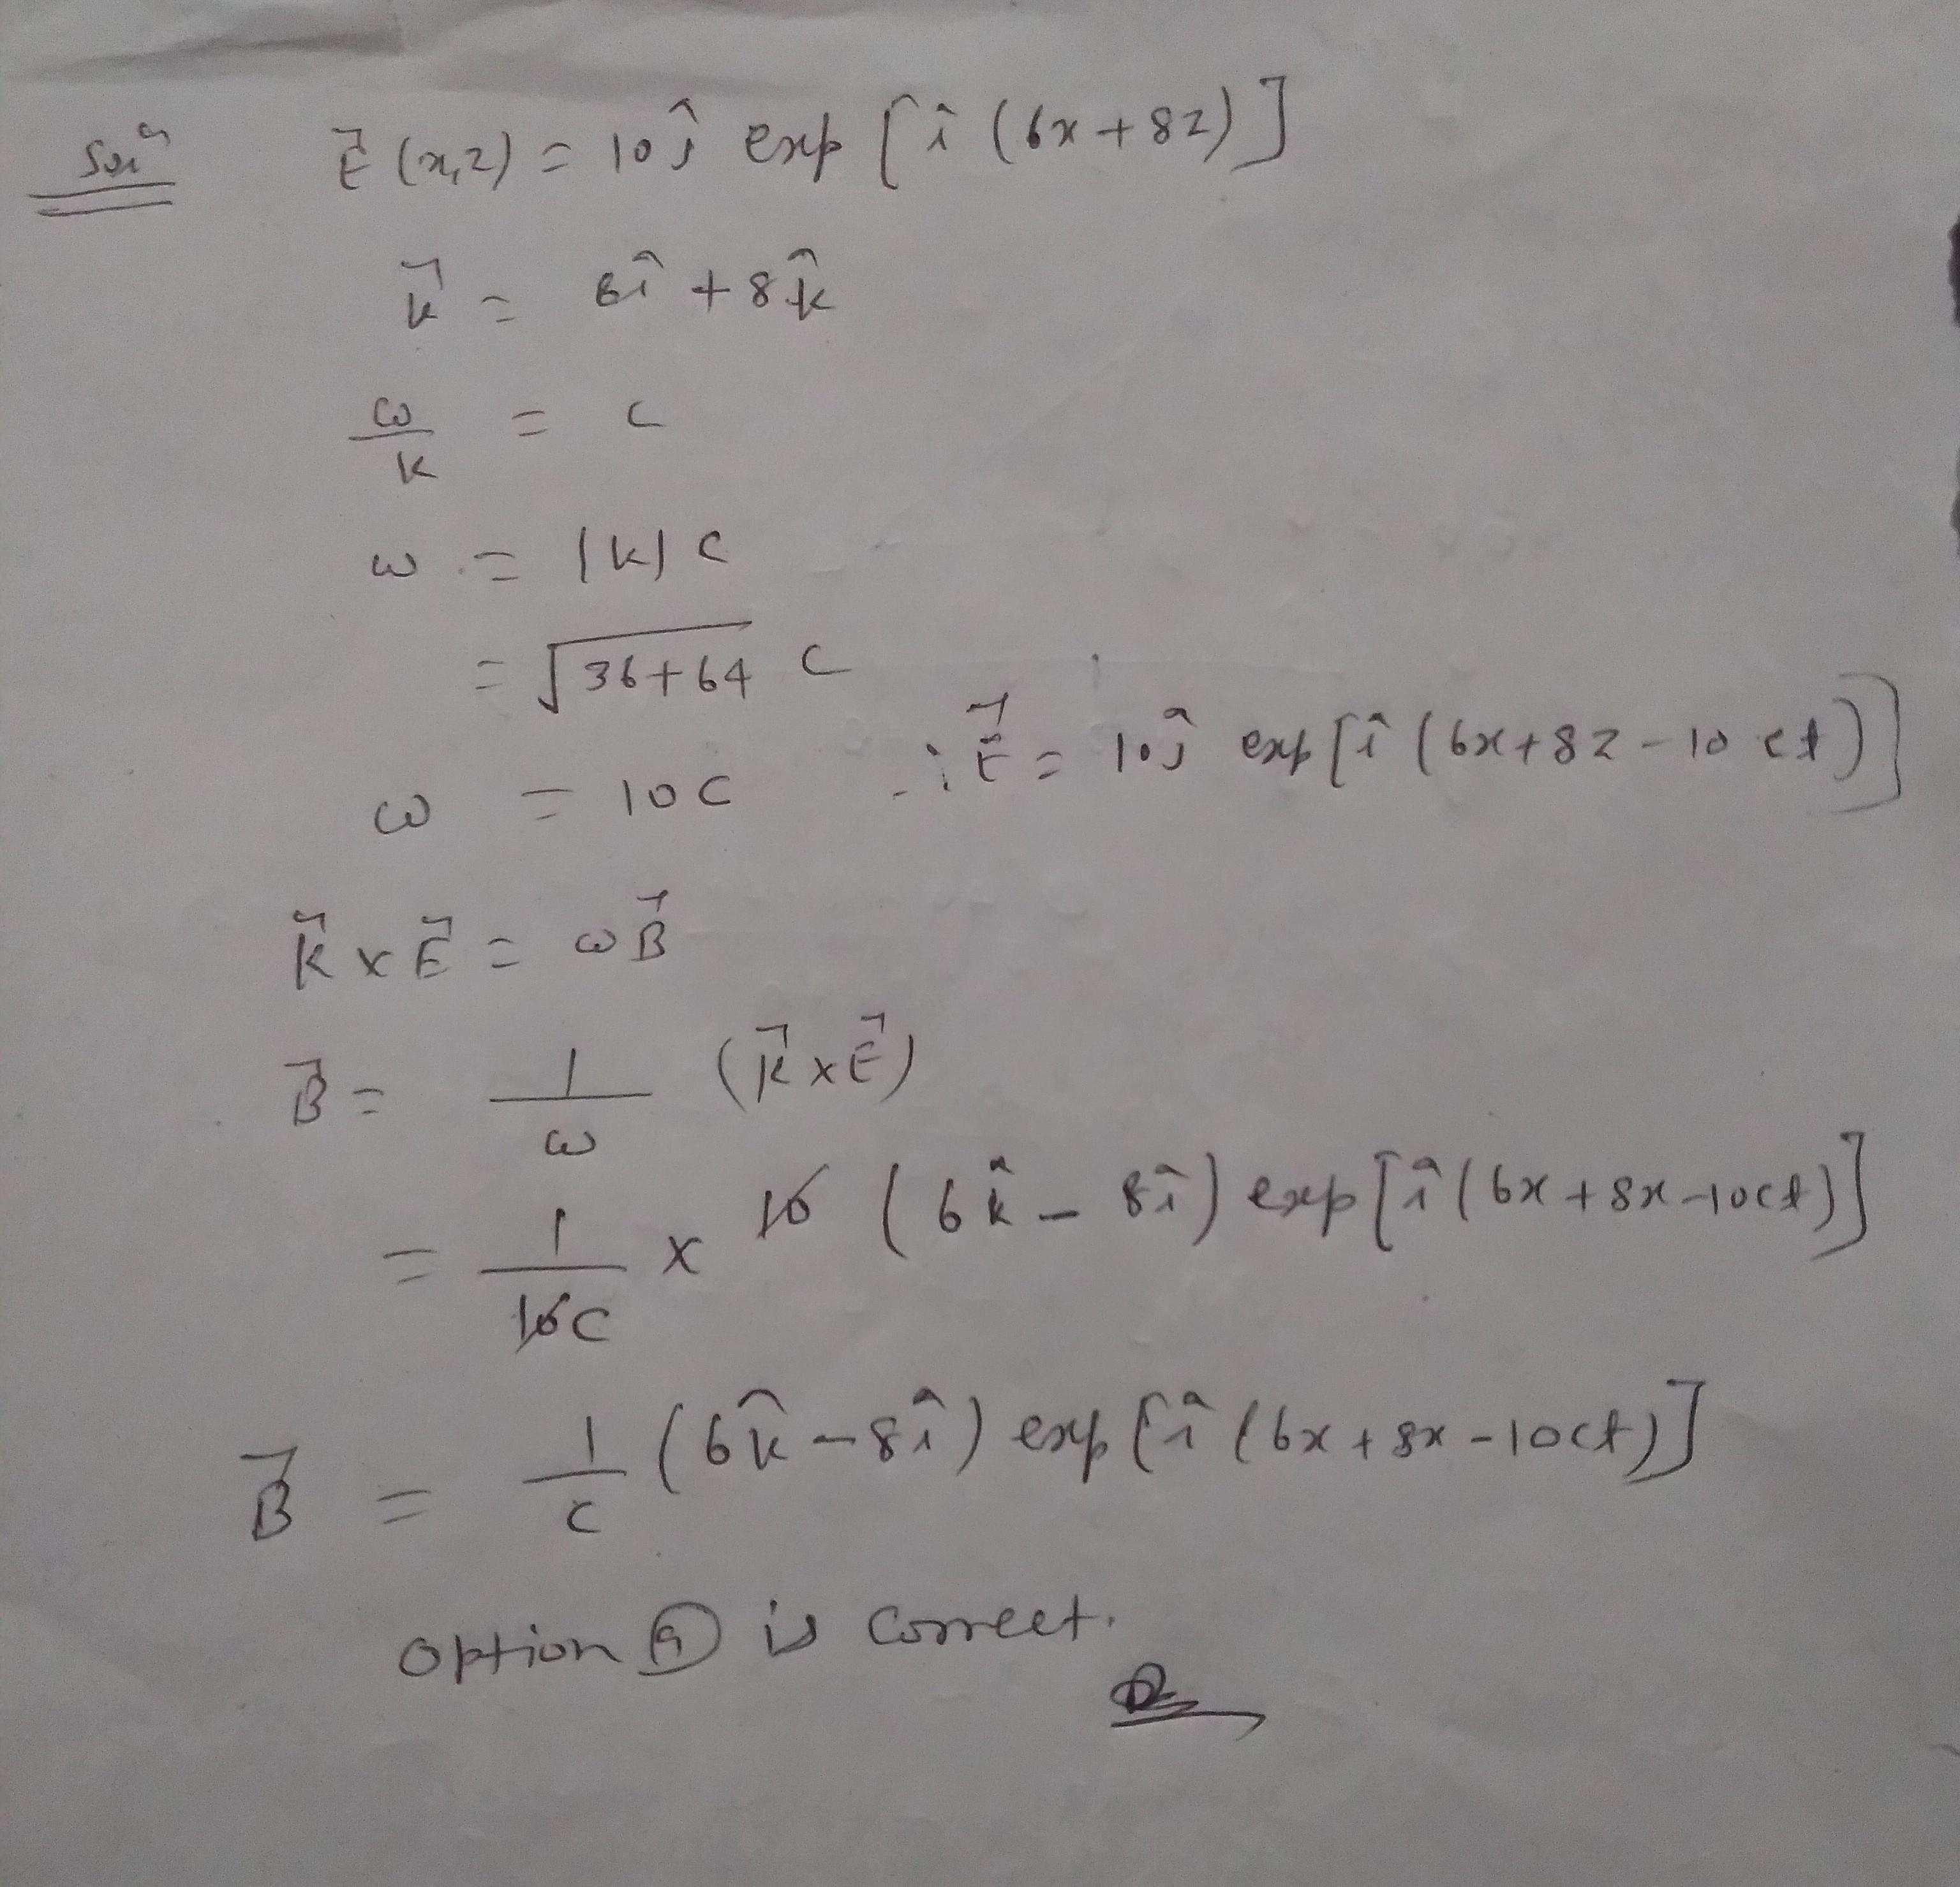 Solⁿ E⃗ (x,z) = 10ĵ exp [î (6x+8z)]
k⃗ = 6î + 8k̂
ω/k = c
ω = |k| c
= √36+64 c
ω = 10c ∴ E⃗ = 10ĵ exp[î (6x+8z-10ct)]
K⃗ x E⃗ = ωB⃗
B⃗ = 1/ω (K⃗ x E⃗)
= 1/10c x 10 (6k̂ - 8î) exp[î(6x+8x-10ct)]
B⃗ = 1/c (6k̂ - 8î) exp[î (6x+8x-10ct)]
option ⓐ is correct.